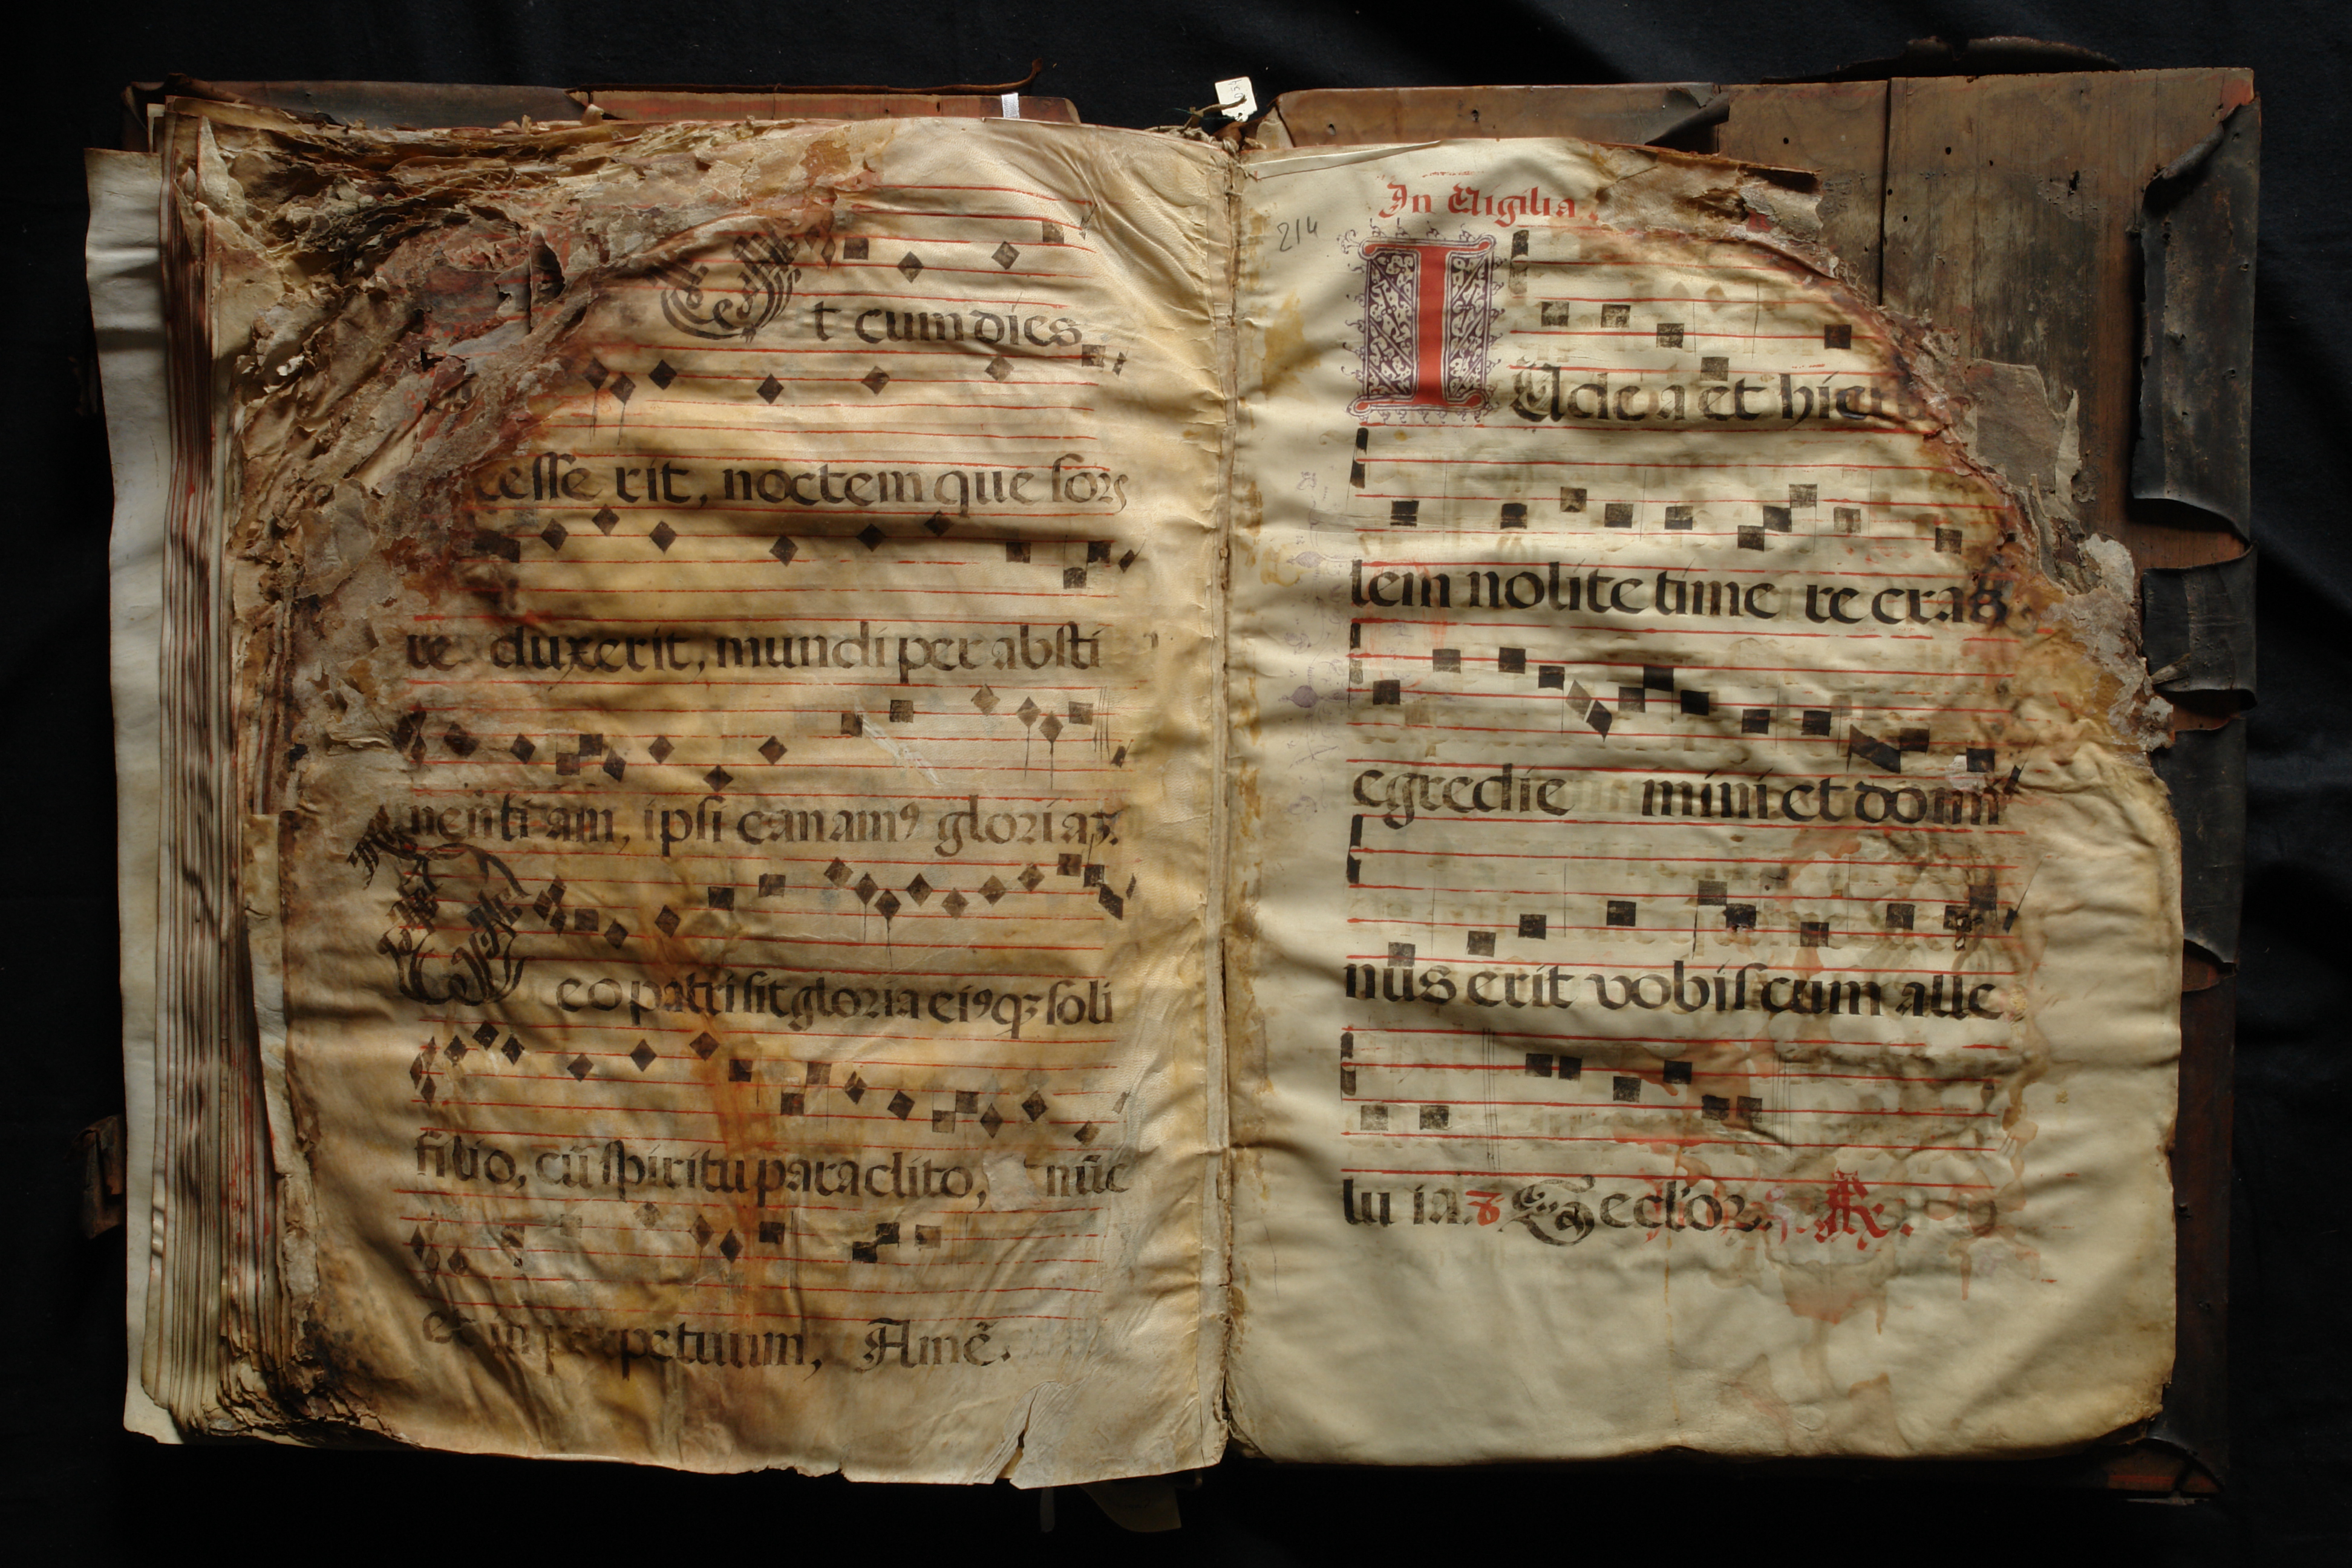 Et cum dies
cesserit, noctem que sors
re duxerit, mundi per absti
nenti am, ipsi canamꝰ gloriaꝫ.
Deo patri sit gloria eiꝰqꝫ soli
filio, cū spiritu paraclito, nūc
et in perpetuum, Amē.
In Vigilia
214
IUde a et hieru
lem nolite time re cras
egredie mini et domi
nus erit vobis cum alle
lu ia. Seclor.